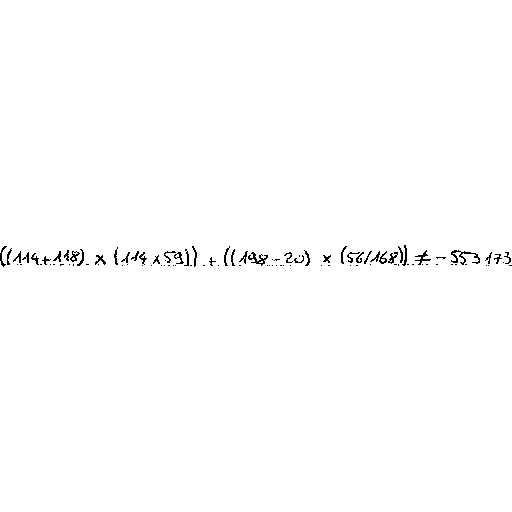 ((114+118) × (114×59)) + ((198-20) × (56/168)) ≠ -553173